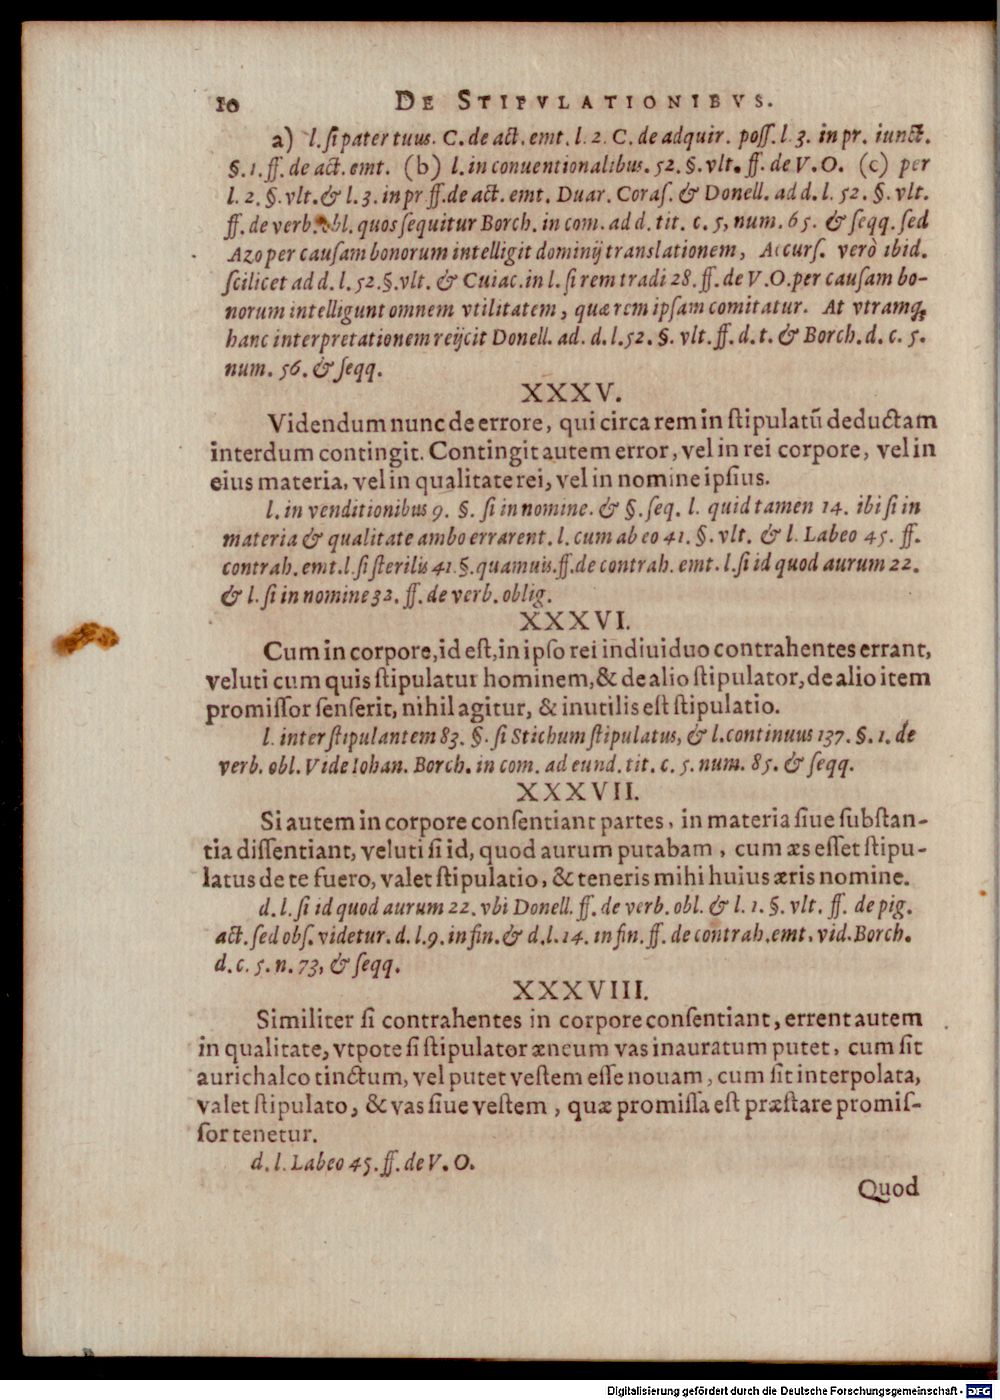 10 DE STIPVLATIONIBVS.
a) l. ſi pater tuus. C. de act. emt. l. 2. C. de adquir. poſſ. l. 3. in pr. iunct.
§. 1. ff. de act. emt. (b) l. in conuentionalibus. 52. §. vlt. ff. de V. O. (c) per
l. 2. §. vlt. & l. 3. in pr ff. de act. emt. Duar. Coraſ. & Donell. ad d. l. 52. §. vlt.
ff. de verb. obl. quos ſequitur Borch. in com. ad d. tit. c. 5, num. 65. & ſeqq. ſed
Azo per cauſam bonorum intelligit dominij translationem, Accurſ. verò ibid.
ſcilicet ad d. l. 52. §. vlt. & Cuiac. in l. ſi rem tradi 28. ff. de V. O. per cauſam bo-
norum intelligunt omnem vtilitatem, quæ rem ipſam comitatur. At vtramq;
hanc interpretationem reijcit Donell. ad. d. l. 52. §. vlt. ff. d. t. & Borch. d. c. 5.
num. 56. & ſeqq.
XXXV.
Videndum nunc de errore, qui circa rem in ſtipulatũ deductam
interdum contingit. Contingit autem error, vel in rei corpore, vel in
eius materia, vel in qualitate rei, vel in nomine ipſius.
l. in venditionibus 9. §. ſi in nomine. & §. ſeq. l. quid tamen 14. ibi ſi in
materia & qualitate ambo errarent. l. cum ab eo 41. §. vlt. & l. Labeo 45. ff.
contrah. emt. l. ſi ſterilis 41. §. quamuis. ff. de contrah. emt. l. ſi id quod aurum 22.
& l. ſi in nomine 32. ff. de verb. oblig.
XXXVI.
Cum in corpore, id eſt, in ipſo rei indiuiduo contrahentes errant,
veluti cum quis ſtipulatur hominem, & de alio ſtipulator, de alio item
promiſſor ſenſerit, nihil agitur, & inutilis eſt ſtipulatio.
l. inter ſtipulantem 83. §. ſi Stichum ſtipulatus, & l. continuus 137. §. 1. de
verb. obl. Vide Iohan. Borch. in com. ad eund. tit. c. 5. num. 85. & ſeqq.
XXXVII.
Si autem in corpore conſentiant partes, in materia ſiue ſubſtan-
tia diſſentiant, veluti ſi id, quod aurum putabam, cum æs eſſet ſtipu-
latus de te fuero, valet ſtipulatio, & teneris mihi huius æris nomine.
d. l. ſi id quod aurum 22. vbi Donell. ff. de verb. obl. & l. 1. §. vlt. ff. de pig.
act. ſed obſ. videtur. d. l. 9. in fin. & d. l. 14. in fin. ff. de contrah. emt. vid. Borch.
d. c. 5. n. 73, & ſeqq.
XXXVIII.
Similiter ſi contrahentes in corpore conſentiant, errent autem
in qualitate, vtpote ſi ſtipulator æneum vas inauratum putet, cum ſit
aurichalco tinctum, vel putet veſtem eſſe nouam, cum ſit interpolata,
valet ſtipulato, & vas ſiue veſtem, quæ promiſſa eſt præſtare promiſ-
ſor tenetur.
d. l. Labeo 45. ff. de V. O.
Quod
Digitalisierung gefördert durch die Deutsche Forschungsgemeinschaft - DFG